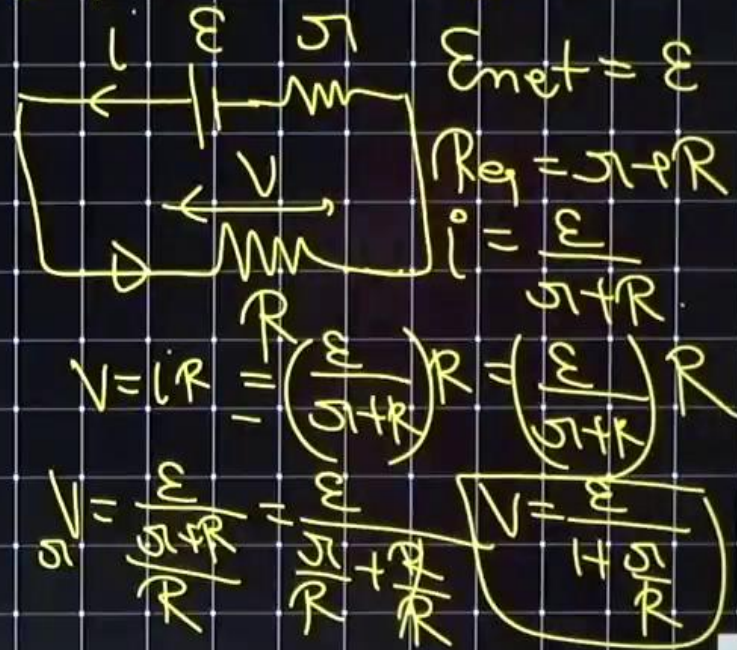 i ε r
Enet = ε
V
Req = r+R
i = ε/(r+R)
R
V = iR = (ε/(r+R))R = (ε/(r+R)) R
or V = ε/((r+R)/R) = ε/(r/R + R/R)
V = ε/(1 + r/R)